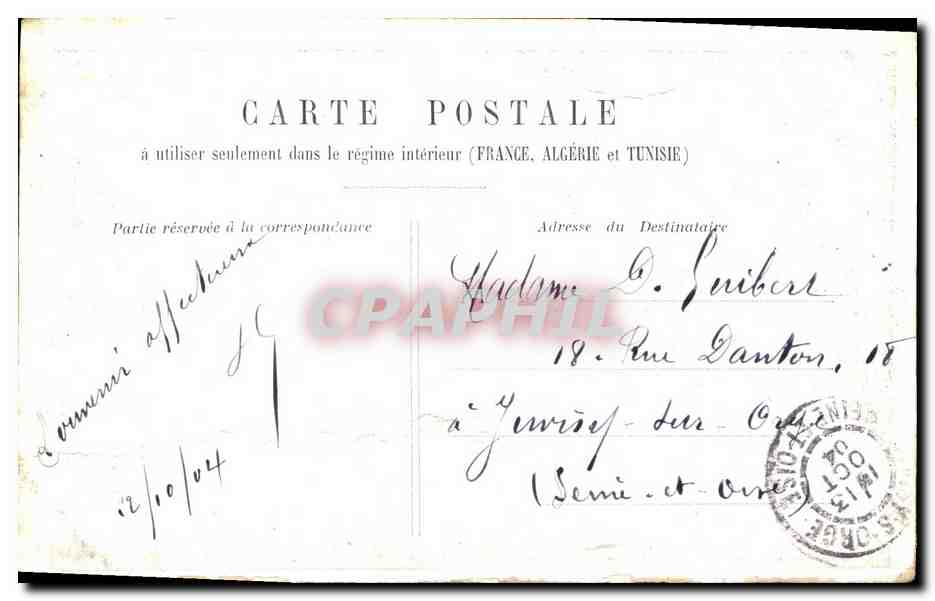 CARTE POSTALE
à utiliser seulement dans le régime intérieur (FRANCE, ALGÉRIE et TUNISIE)
Partie réservée à la correspondance
Souvenir affectueux
12/10/04
Adresse du Destinataire
Madame D. Guibert
18. Rue Danton, 18
à Juvisy-sur Orge
(Seine-et-Oise)
CPAPHIL
13
OCT
04
ORGE